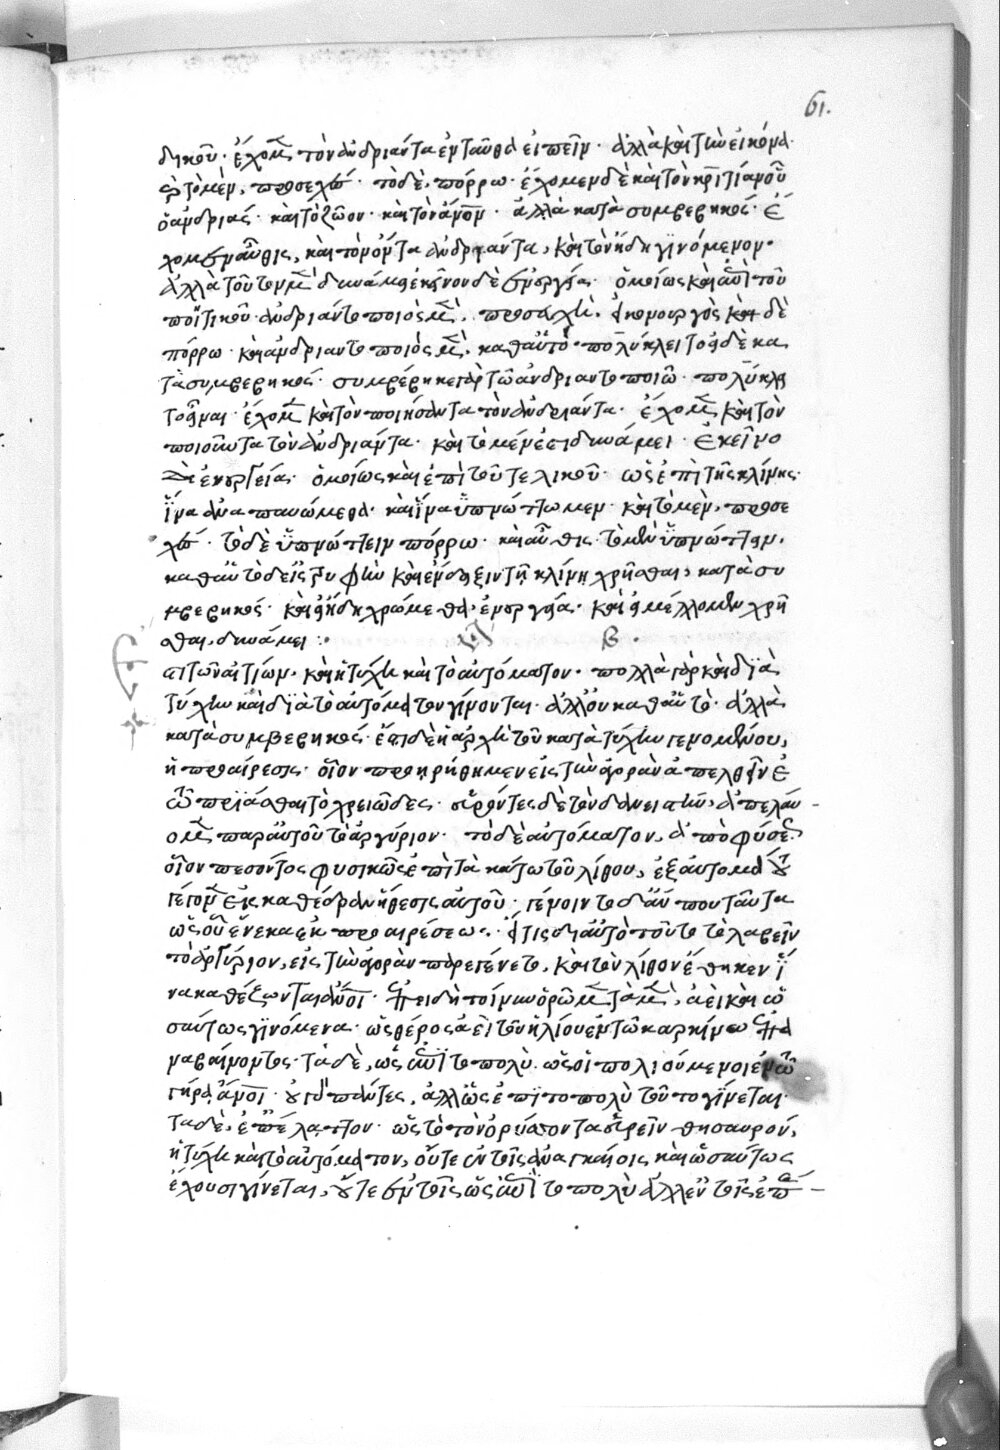 61.
δικοῦ· ἔχομεν τὸν ἀνδριάντα ἐνταῦθα εἰπεῖν· ἀλλὰ καὶ τὴν εἰκόνα·
τὸ μὲν, προσεχῶς· τὸ δὲ, πόρρω· ἔχομεν δὲ καὶ τὸν
ὁ ἀνδριάς· καὶ τὸ ζῶον· καὶ τὸν ἄνον· ἀλλὰ κατὰ συμβεβηκός· ἔ
χομεν αὖθις, καὶ τὸν ὄντα ἀνδριάντα, καὶ τὸν ἤδη γινόμενον·
ἀλλὰ τοῦτον μὲν δυνάμει ἐκεῖνον δὲ ἐνεργείᾳ· ὁμοίως καὶ ἐπὶ τοῦ
ποιητικοῦ· ἀνδριαντοποιὸς μὲν, προσεχὴς· δημιουργὸς καὶ δὲ
πόρρω· καὶ ἀνδριαντοποιὸς μὲν, καθαὑτό· πολύκλειτος δὲ κα
τὰ συμβεβηκός· συμβέβηκε γὰρ τῶ ἀνδριαντοποιῶ· πολυκλεί
τω εἶναι· ἔχομεν καὶ τὸν ποιήσαντα τὸν ἀνδριάντα· ἔχομεν καὶ τὸν
ποιοῦντα τὸν ἀνδριάντα· καὶ τὸ μέν ἐστι δυνάμει· ἐκεῖνο
δὲ ἐνεργείᾳ· ὁμοίως καὶ ἐπὶ τοῦ τελικοῦ· ὡς ἐπὶ τῆς κλίνης·
ἵνα ἀναπαυώμεθα· καὶ ἵνα ὑπνώττωμεν· καὶ τὸ μὲν, προσε
χῶς· τὸ δὲ ὑπνώττειν πόρρω· καὶ αὖθις· τὸ μὲν ὑπνώττειν·
καθαὑτὸ δ εἰς τρυφὴν καὶ ἔνδειξιν τῇ κλίνῃ χρῆσθαι, κατὰ συ
μβεβηκός· καὶ ᾗ ἤδη χρώμεθα, ἐνεργείᾳ· καὶ ᾗ μέλλομεν χρῆ
σθαι, δυνάμει :·
β·
τῶν αἰτίων, καὶ ἡ τύχη καὶ τὸ αὐτόματον· πολλὰ γὰρ καὶ διὰ
τύχην καὶ διὰ τὸ αὐτόματον γίνονται· ἀλλ' οὐ καθαὑτὸ· ἀλλὰ
κατὰ συμβεβηκός· ἔστι δὲ ἡ ἀρχὴ τοῦ κατὰ τύχην γενομένου,
ἡ προαίρεσις· οἷον προῃρήθημεν εἰς τὴν ἀγορὰν ἀπελθεῖν ἐ
πρίασθαι τὸ χρειῶδες· εὑρόντες δὲ τὸν δανειστὴν, ἀπελάβ
ομεν παραυτοῦ τὸ ἀργύριον· τὸ δὲ αὐτόματον, ἀπὸ φύσε
οἷον πεσόντος φυσικῶς ἐπὶ τὰ κάτω τοῦ λίθου, ἐξ αὐτομάτου
γέγονεν εἰς καθέδραν ἡ θέσις αὐτοῦ· γένοιντο δ' ἄν που ταῦτα
ὡς οὗ ἕνεκα ἐκ προαιρέσεως· εἴ τις δι' αὐτὸ τοῦτο τὸ λαβεῖν
τὸ ἀργύριον, εἰς τὴν ἀγορὰν παρεγένετο, καὶ τὸν λίθον ἔθηκεν ἵ
να καθέζωνται ἄνοι· ἐπειδὴ τοίνυν ὁρῶμεν τὰ μὲν, ἀεὶ καὶ ὡ
σαύτως γινόμενα· ὡς θέρος ἀεὶ τοῦ ἡλίου ἐν τῶ καρκίνω
μβαίνοντος· τὰ δὲ, ὡς ἐπὶ τὸ πολὺ· ὡς οἱ πολιούμενοι ἐν τῶ
γήρᾳ ἄνοι· οὐ γὰρ πάντες, ἀλλ' ὡς ἐπὶ το πολὺ τοῦτο γίνεται·
τὰ δὲ, ἐπέλαττον· ὡς τὸ τὸν ὀρύσσοντα εὑρεῖν θησαυρόν,
ἡ τύχη καὶ τὸ αὐτόματον, οὔτε ἐν τοῖς ἀναγκαίοις καὶ ὡσαύτως
ἔχουσι γίνεται, οὔτε ἐν τοῖς ὡς ἐπὶ τὸ πολὺ ἀλλ' ἐν τοῖς ἐπ